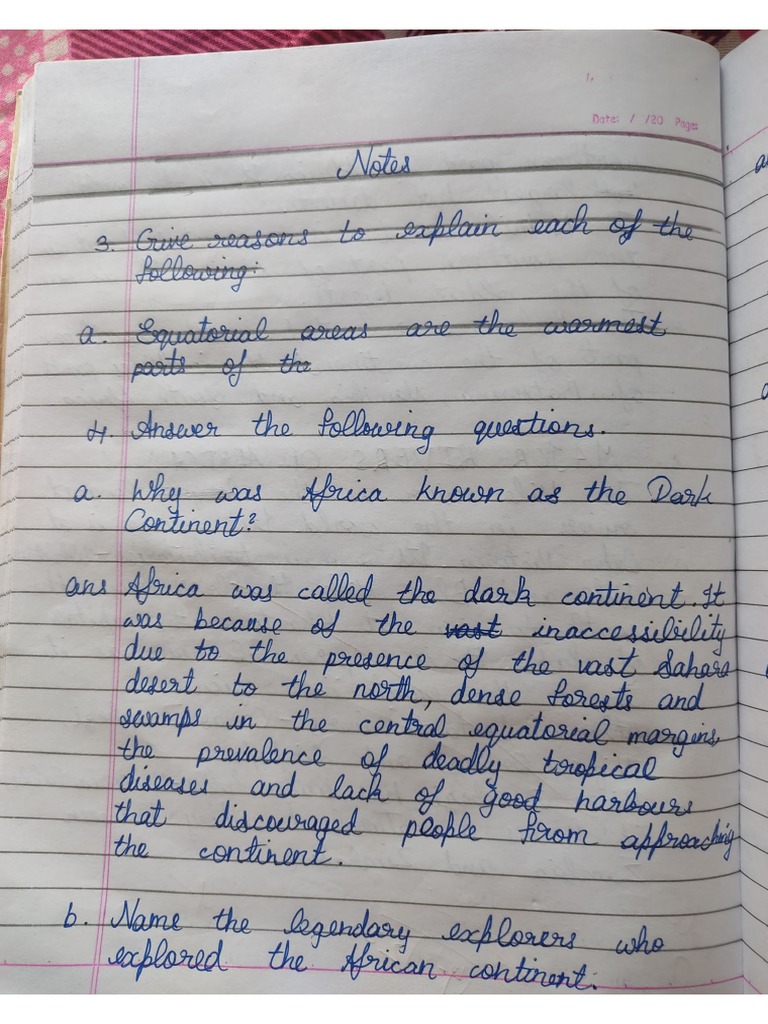 Date: / /20 Pages
Notes
3. Give reasons to explain each of the
following:
a. Equatorial areas are the warmest
parts of the
4. Answer the following questions.
a. Why was Africa known as the Dark
Continent?
ans Africa was called the dark continent. It
was because of the vast inaccessibility
due to the presence of the vast Sahara
desert to the north, dense forests and
swamps in the central equatorial margins,
the prevalence of deadly tropical
diseases and lack of good harbours
that discouraged people from approaching
the continent.
b. Name the legendary explorers who
explored the African continent.